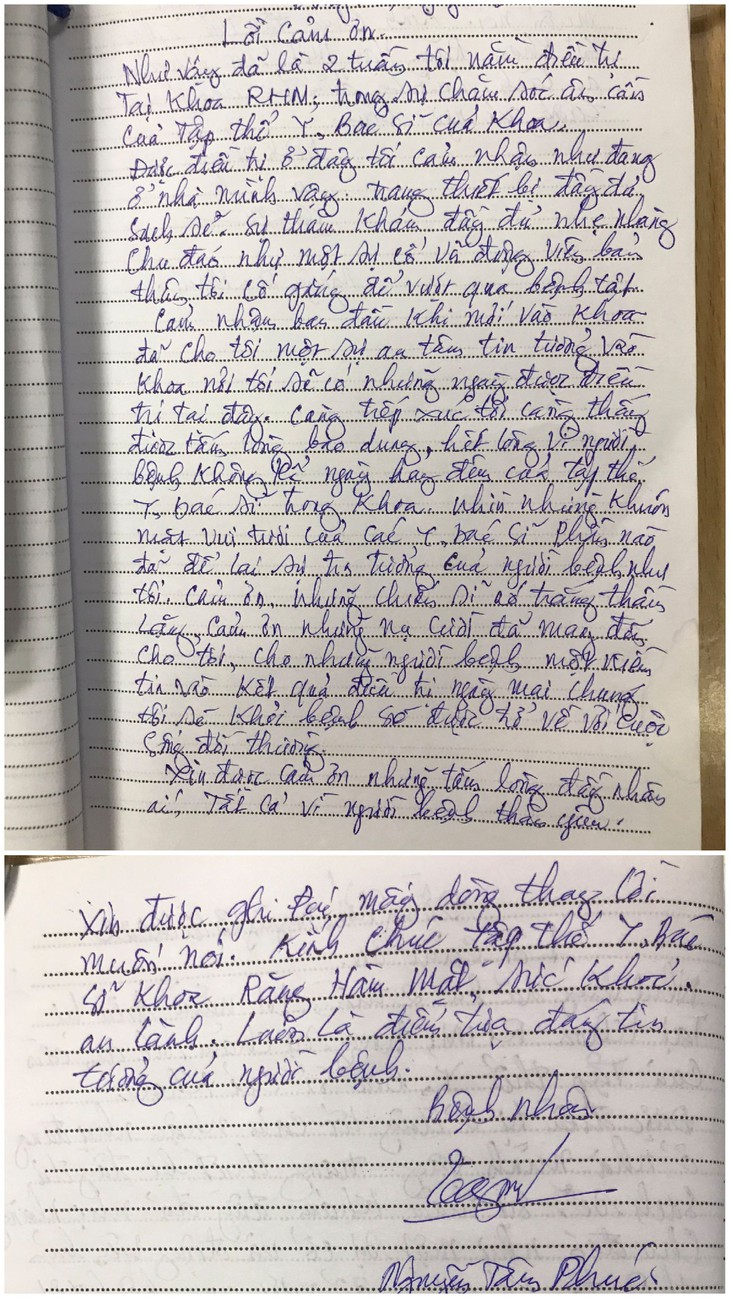 Lời cảm ơn.
Như vậy đã là 2 tuần tôi nằm điều trị
Tại khoa RHM, trong sự chăm sóc ân cần
của Tập thể Y, Bác sĩ của Khoa.
Được điều trị ở đây tôi cảm nhận như đang
ở nhà mình vậy. trang thiết bị đầy đủ
sạch sẽ. sự thăm khám đầy đủ nhẹ nhàng
chu đáo như một sự cổ vũ động viên bản
thân tôi cố gắng để vượt qua bệnh tật.
Cảm nhận ban đầu khi mới vào khoa
đã cho tôi một sự an tâm tin tưởng vào
khoa nơi tôi sẽ có những ngày được điều
trị tại đây. Càng tiếp xúc tôi càng thấy
được tấm lòng bao dung, hết lòng vì người
bệnh không kể ngày hay đêm của tập thể
Y, bác sĩ trong khoa. nhìn những khuôn
mặt vui tươi của các Y, bác sĩ phần nào
đã để lại sự tin tưởng của người bệnh như
tôi. cảm ơn những chiến sĩ áo trắng thầm
lặng, cảm ơn những nụ cười đã mang đến
cho tôi, cho những người bệnh một niềm
tin vào kết quả điều trị ngày mai chúng
tôi sẽ khỏi bệnh sẽ được trở về với cuộc
sống đời thường.
Xin được cảm ơn những tấm lòng đầy nhân
ái, Tất cả vì người bệnh thân yêu.
Xin được ghi mấy dòng thay lời
muốn nói. Kính chúc tập thể Y, Bác
sĩ khoa Răng Hàm Mặt, sức khoẻ,
an lành. Luôn là điểm tựa đáng tin
tưởng của người bệnh.
Bệnh nhân
Nguyễn Tấn Phước